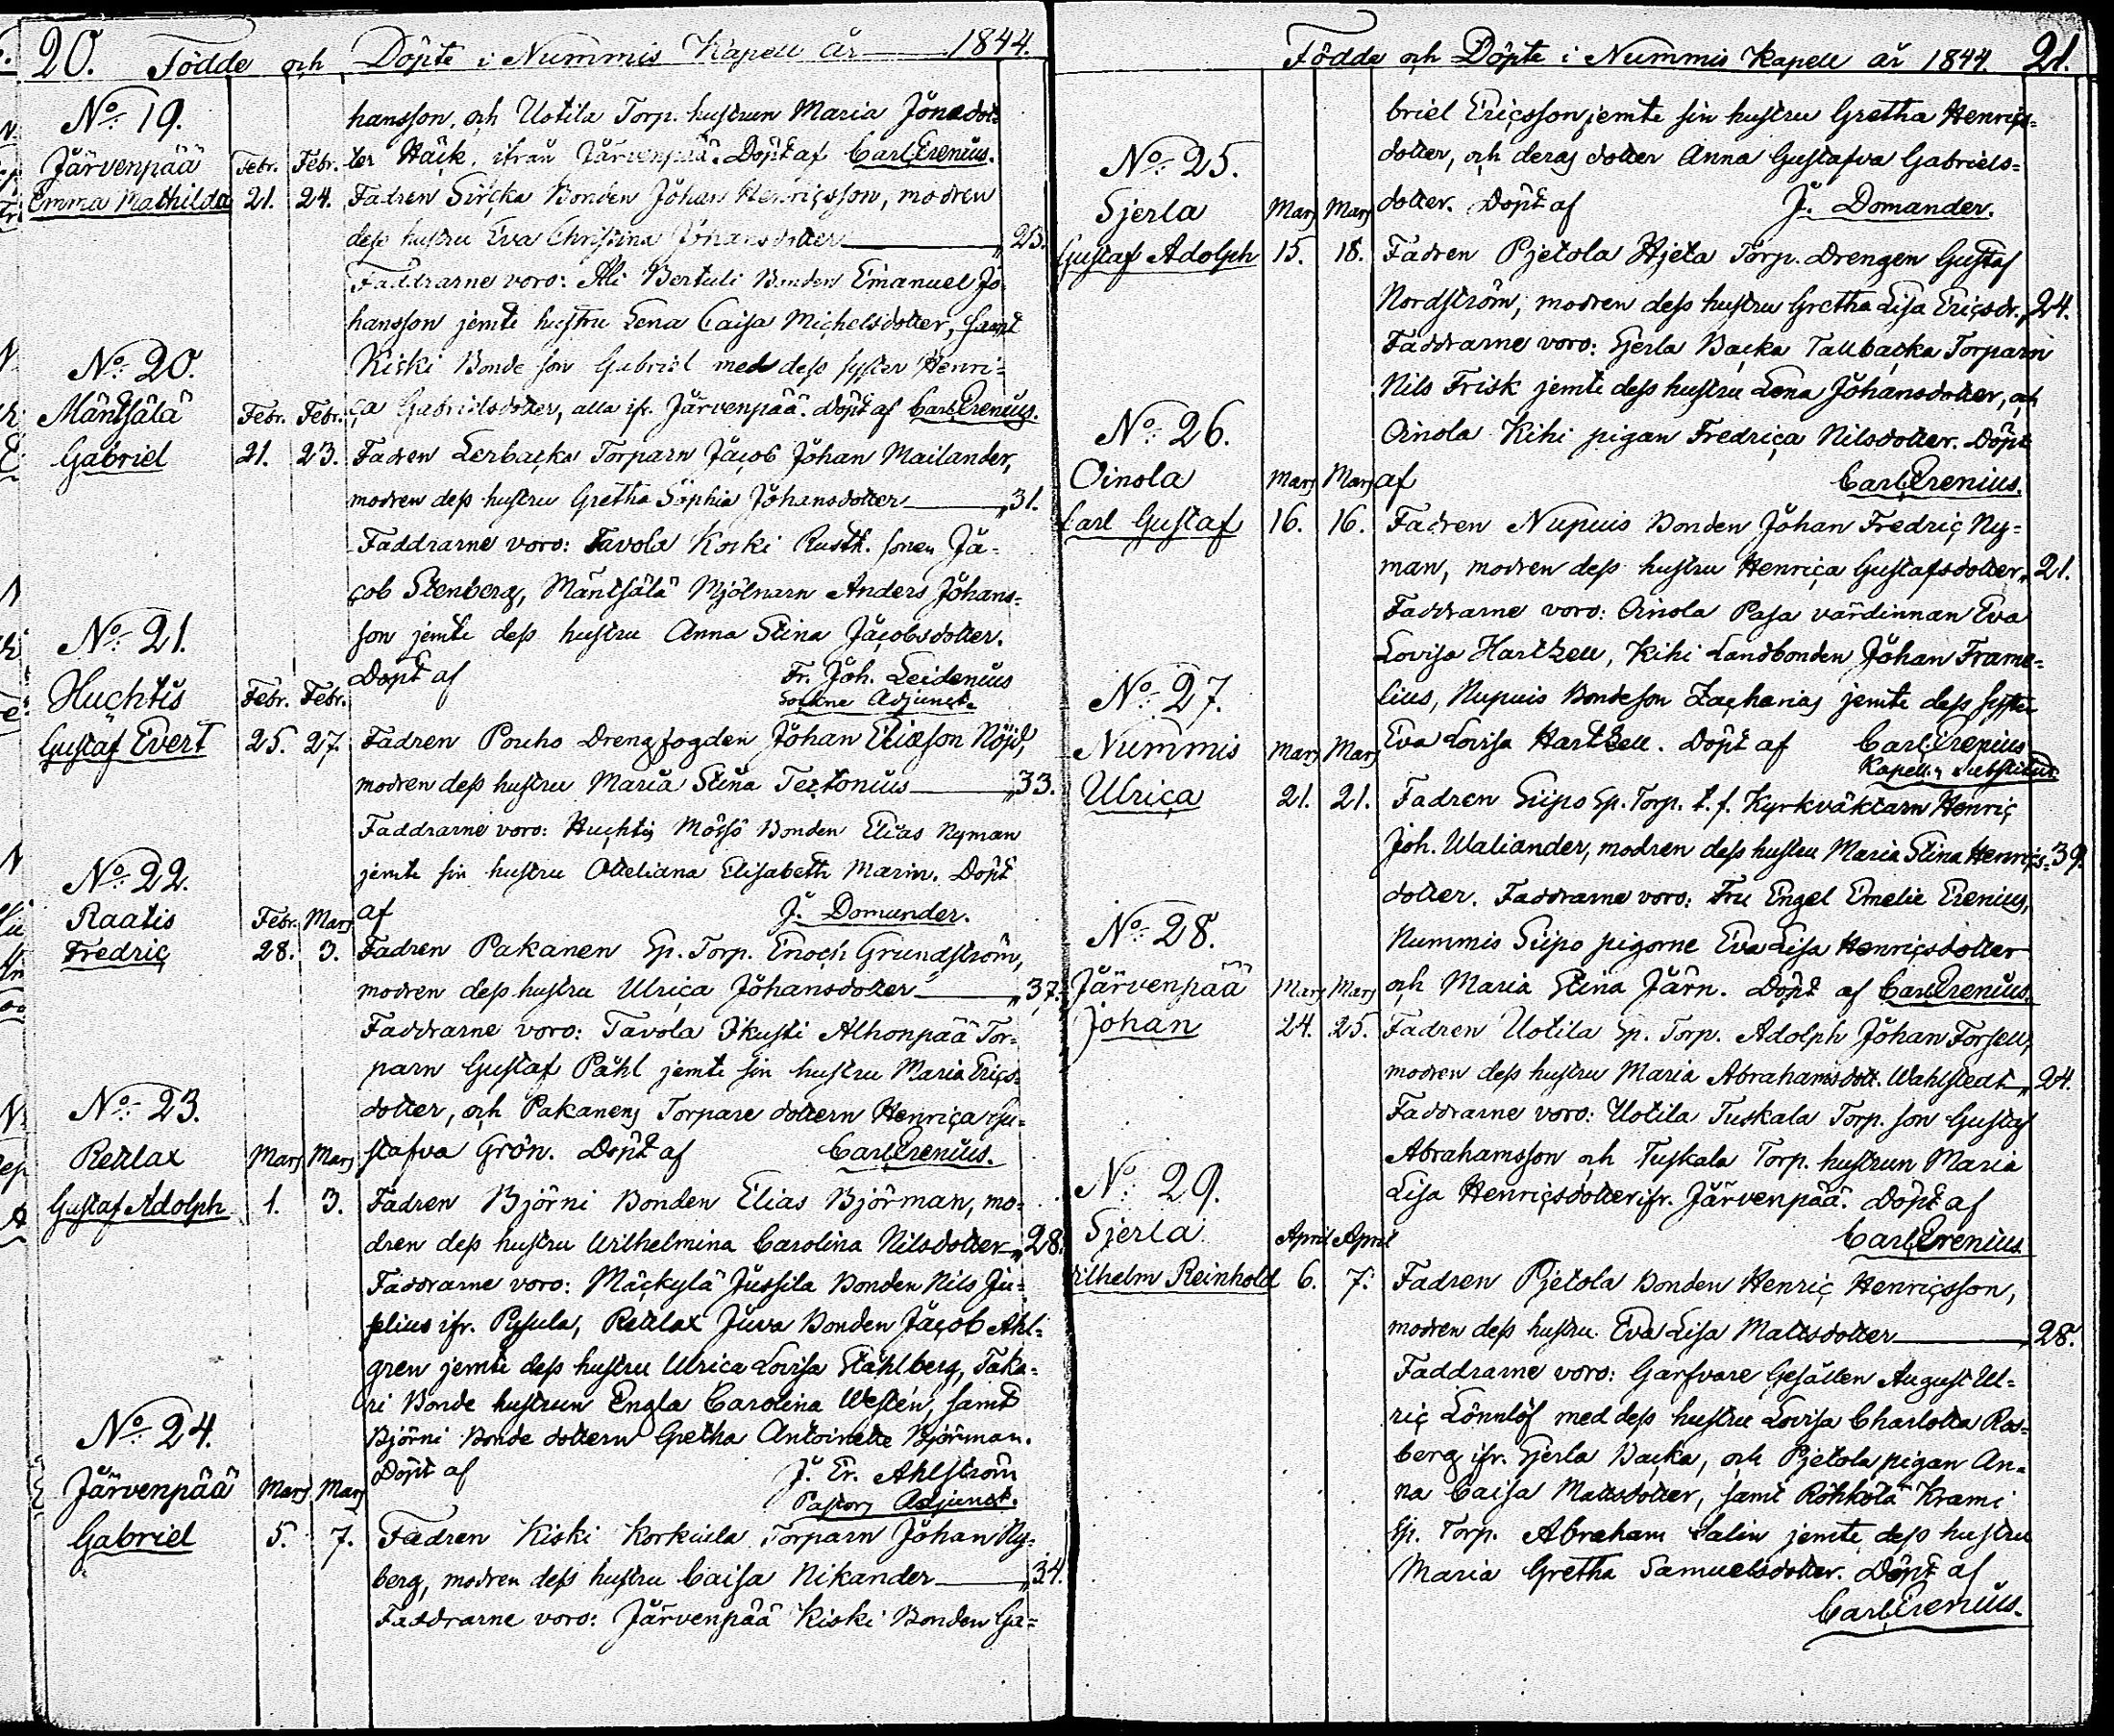 20. Födde och Döpte i Nummis Kapell år 1844.
hansson, och Uotila Torp. hustrun Maria Jonædot-
ter Häck, ifrån Järvenpää. Döpt af Carl Erenius.
No. 19.
Järvenpää Febr. Febr.
Emma Mathilda 21. 24. Fadren Sircka Bonden Johan Henricsson, modren
dess hustru Eva Christina Johansdotter " 25.
Faddrarne voro: Ali Bertuli Bonden Emanuel Jo-
hansson jemte hustru Lena Caisa Michelsdotter, samt
Kiski Bonde son Gabriel med dess syster Henri-
ca Gabrielsdotter, alla ifr. Järvenpää. Döpt af Carl Erenius.
No. 20.
Mäntsälä Febr. Febr.
Gabriel 21. 23. Fadren Lerbacka Torparn Jacob Johan Mailander,
modren dess hustru Gretha Sophia Johansdotter " 31.
Faddrarne voro: Tavola Koski Rusth. sonen Ja-
cob Stenberg, Mäntsälä Mjölnarn Anders Johans-
son jemte dess hustru Anna Stina Jacobsdotter.
Döpt af Fr. Joh. Leidenius
Sockne Adjunct.
No. 21.
Huchtis Febr. Febr.
Gustaf Evert 25. 27. Fadren Poucho Drengfogden Johan Eliason Nöjd,
modren dess hustru Maria Stina Tectonius " 33.
Faddrarne voro: Huchtis Mössö Bonden Elias Nyman
jemte sin hustru Otteliana Elisabeth Marin. Döpt
af J. Domander.
No. 22.
Raatis Febr. Mars
Fredric 28. 3. Fadren Pakanen Sp. Torp. Enoch Grundström,
modren dess hustru Ulrica Johansdotter " 37.
Faddrarne voro: Tavola Ikusti Alhonpää Tor-
parn Gustaf Påhl jemte sin hustru Maria Erics-
dotter, och Pakanens Torpare dottern Henrica Gu-
stafva Grön. Döpt af Carl Erenius.
No. 23.
Retlax Mars Mars
Gustaf Adolph 1. 3. Fadren Björni Bonden Elias Björman, mo-
dren dess hustru Wilhelmina Carolina Nilsdotter " 28.
Faddrarne voro: Mäckylä Jussila Bonden Nils Ju-
selius ifr. Pusula, Retlax Juva Bonden Jacob Ahl-
gren jemte dess hustru Ulrica Lovisa Ståhlberg, Taka-
ri Bonde hustrun Engla Carolina Westén, samt
Björni Bonde dottern Gretha Antoinette Björman.
Döpt af J. Er. Ahlström
Pastors Adjunct.
No. 24.
Järvenpää Mars Mars
Gabriel 5. 7. Fadren Kiski Korkiula Torparn Johan Ny-
berg, modren dess hustru Caisa Nikander " 34.
Faddrarne voro: Järvenpää Kiski Bonden Ga-
Födde och Döpte i Nummis Kapell år 1844. 21.
briel Ericsson jemte sin hustru Gretha Henrics-
dotter, och deras dotter Anna Gustafva Gabriels-
dotter. Döpt af J. Domander.
No. 25.
Sjerla Mars Mars
Gustaf Adolph 15. 18. Fadren Pjetola Hjeta Torp. Drengen Gustaf
Nordström, modren dess hustru Gretha Lisa Ericsdr. " 24.
Faddrarne voro: Sjerla Backa Tallbacka Torparn
Nils Frisk jemte dess hustru Lena Johansdotter, och
Oinola Kihi pigan Fredrica Nilsdotter. Döpt
af Carl Erenius.
No. 26.
Oinola Mars Mars
Carl Gustaf 16. 16. Fadren Nupuis Bonden Johan Fredric Ny-
man, modren dess hustru Henrica Gustafsdotter " 21.
Faddrarne voro: Oinola Pasa värdinnan Eva
Lovisa Hartzell, Kihi Landbonden Johan Frame-
lius, Nupuis Bondeson Zacharias jemte dess syster
Eva Lovisa Hartzell. Döpt af Carl Erenius
Kapell. Substitut.
No. 27.
Nummis Mars Mars
Ulrica 21. 21. Fadren Siipo Sp. Torp. t. f. Kyrkväktarn Henric
Joh. Waliander, modren dess hustru Maria Stina Henrics- 39.
dotter. Faddrarne voro: Fru Engel Emelie Erenius,
Nummis Siipo pigorne Eva Lisa Henricsdotter
och Maria Stina Järn. Döpt af Carl Erenius.
No. 28.
Järvenpää Mars Mars
Johan 24. 25. Fadren Uotila Sp. Torp. Adolph Johan Forsell,
modren dess hustru Maria Abrahamsdott. Wahlstedt " 24.
Faddrarne voro: Uotila Tuskala Torp. son Gustaf
Abrahamsson och Tuskala Torp. hustrun Maria
Lisa Henricsdotter ifr. Järvenpää. Döpt af
Carl Erenius
No. 29.
Sjerla April April
Wilhelm Reinhold 6. 7. Fadren Pjetola Bonden Henric Henricsson,
modren dess hustru Eva Lisa Mattsdotter " 28.
Faddrarne voro: Garfvare Gesällen August Ul-
ric Lönnlöf med dess hustru Lovisa Charlotta Ros-
berg ifr. Sjerla Backa, och Pjetola pigan An-
na Caisa Mattsdotter, samt Röhkölä Krami
Sp. Torp. Abraham Salin jemte dess hustru
Maria Gretha Samuelsdotter. Döpt af
Carl Erenius.